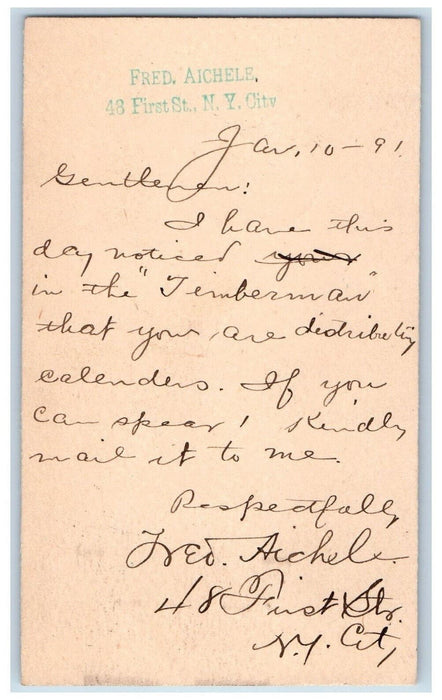 FRED. AICHELE,
48 First St., N. Y. City
Jan. 10-91.
Gentlemen:
I have this
day noticed your
in the "Timberman"
that you are distributing
calenders. If you
can spear 1 Kindly
mail it to me.
Respectfully
Fred. Aichele.
48 First Str.
N.Y. City